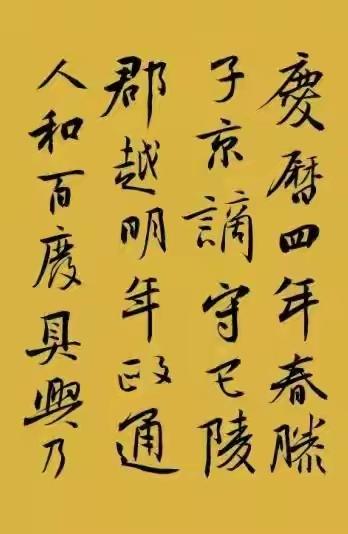 慶曆四年春滕
子京謫守巴陵
郡越明年政通
人和百廢具興乃